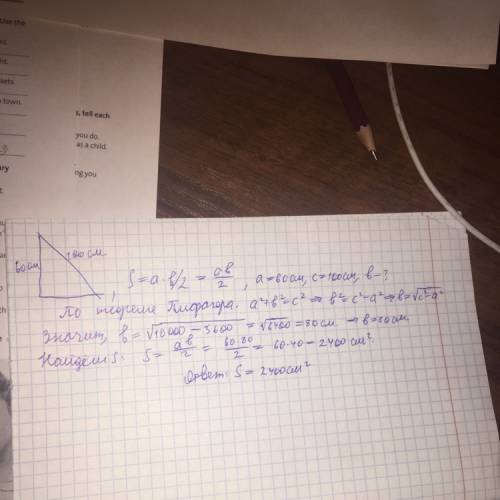 Use the
ht.
kets.
town.
s, tell each
you do.
as a child.
ng you
60см
100 см
, S = a · b/2 = ab/2 , a = 60см, c = 100см, b - ?
По теореме Пифагора: a²+b²=c² ⇒ b²=c²-a² ⇒ b=√c²-a²
Значит, b = √10000 - 3600 = √6400 = 80см ⇒ b=80см
Найдём S: S = ab/2 = 60·80/2 = 60·40 = 2400 см².
Ответ: S = 2400см²